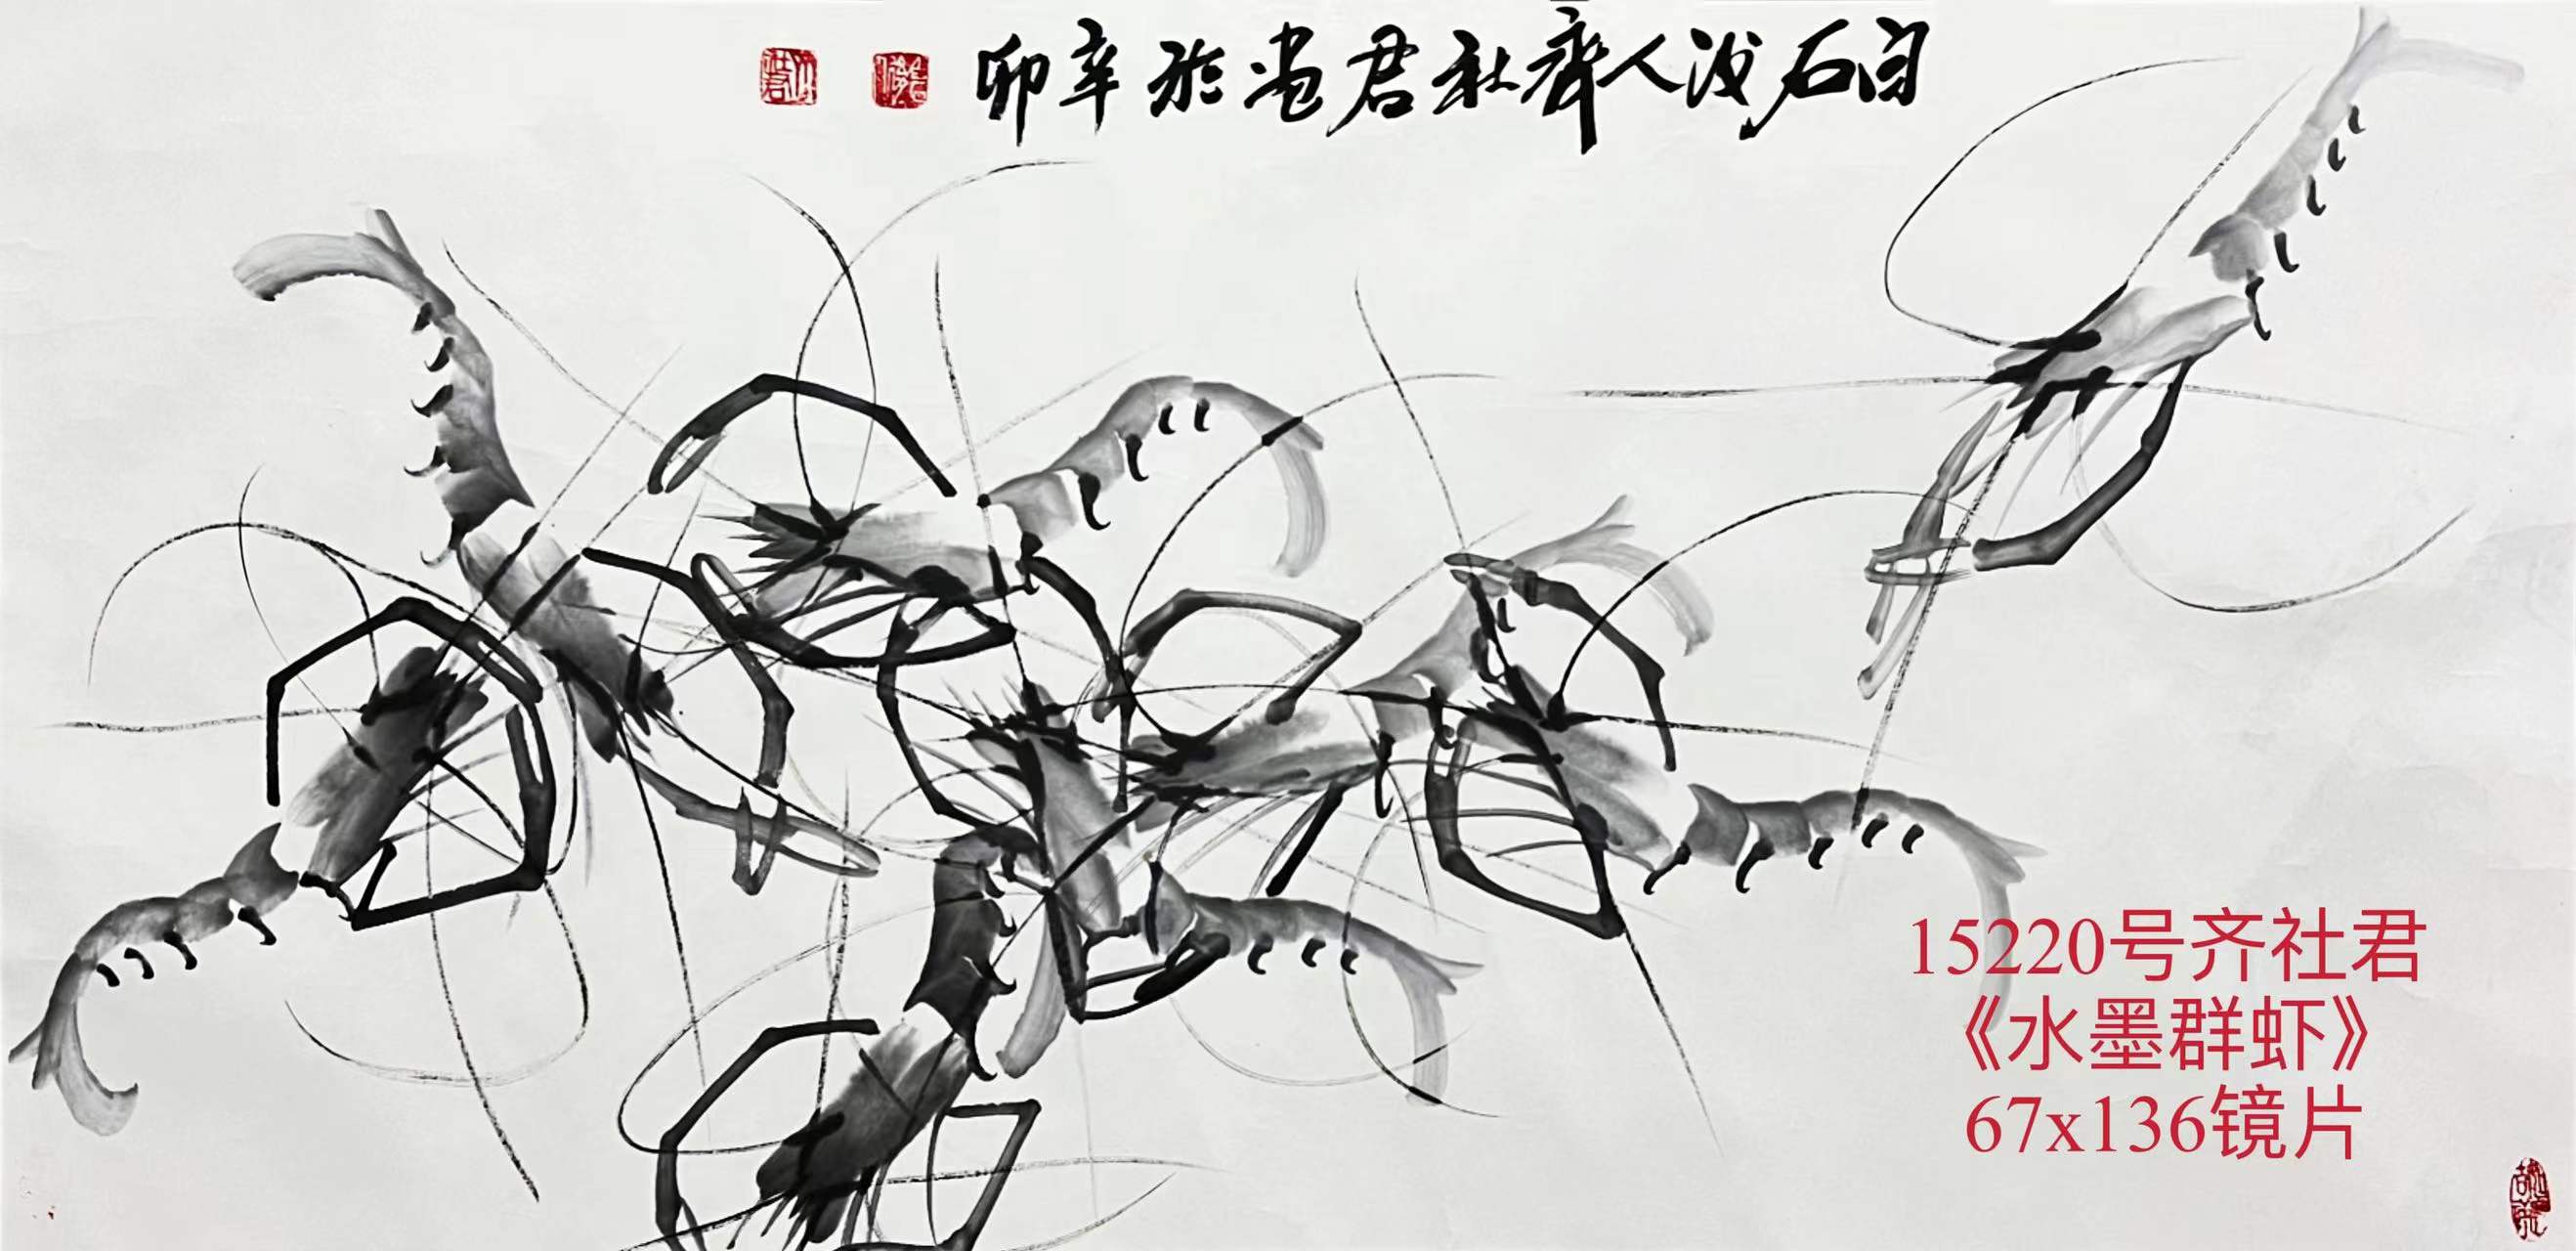 白石後人齊社君畫於辛卯
15220号齐社君
《水墨群虾》
67x136镜片